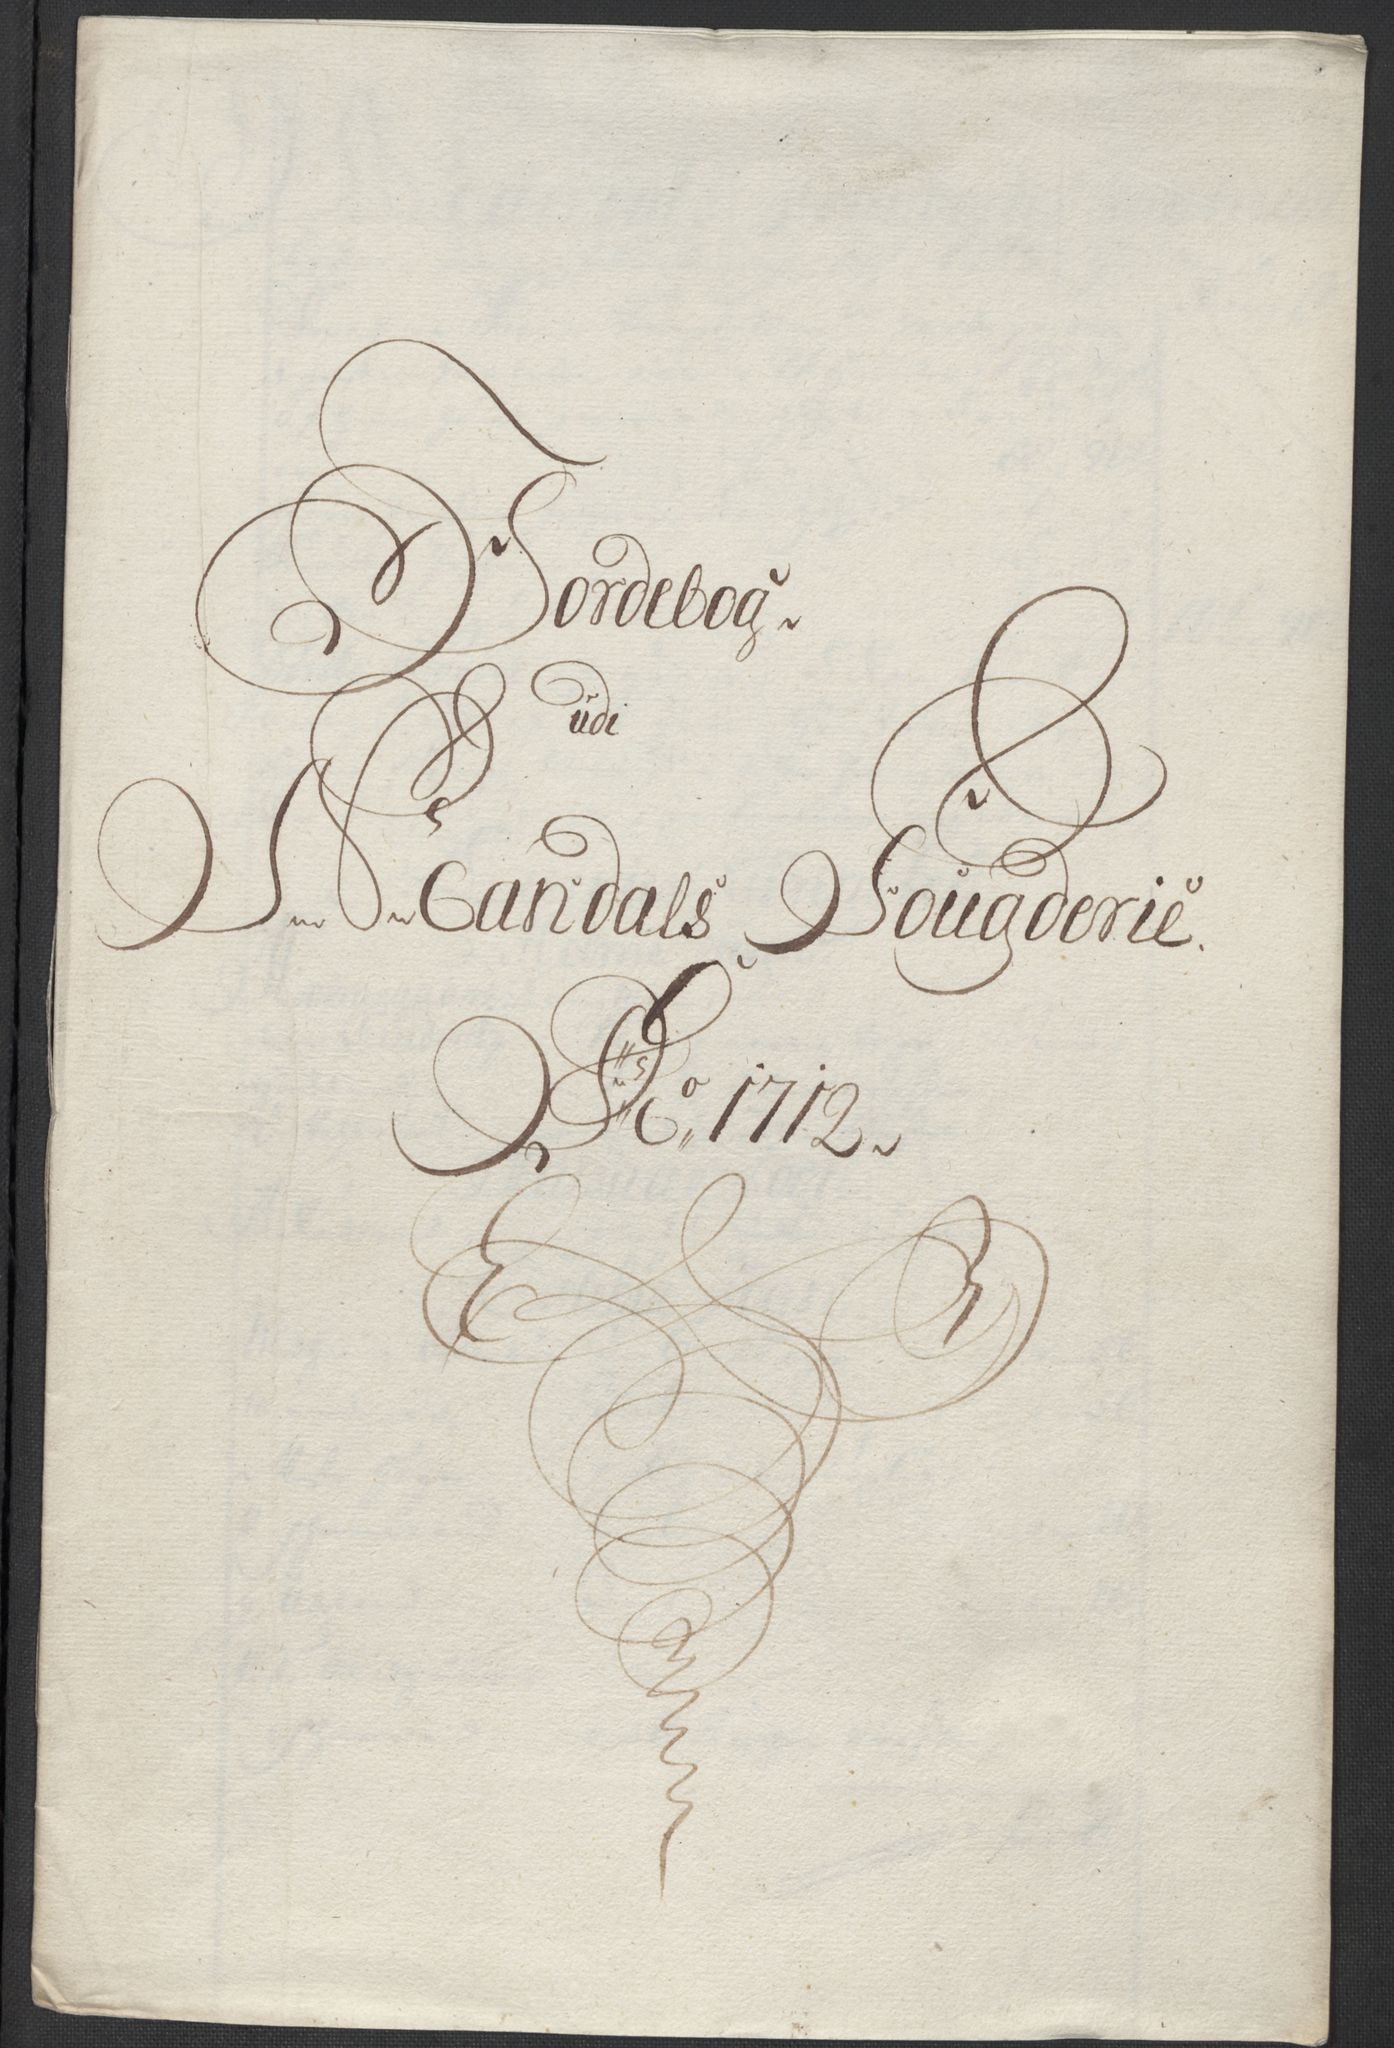 Jordebog
udi
Mandals Fougderie
Ao. 1712